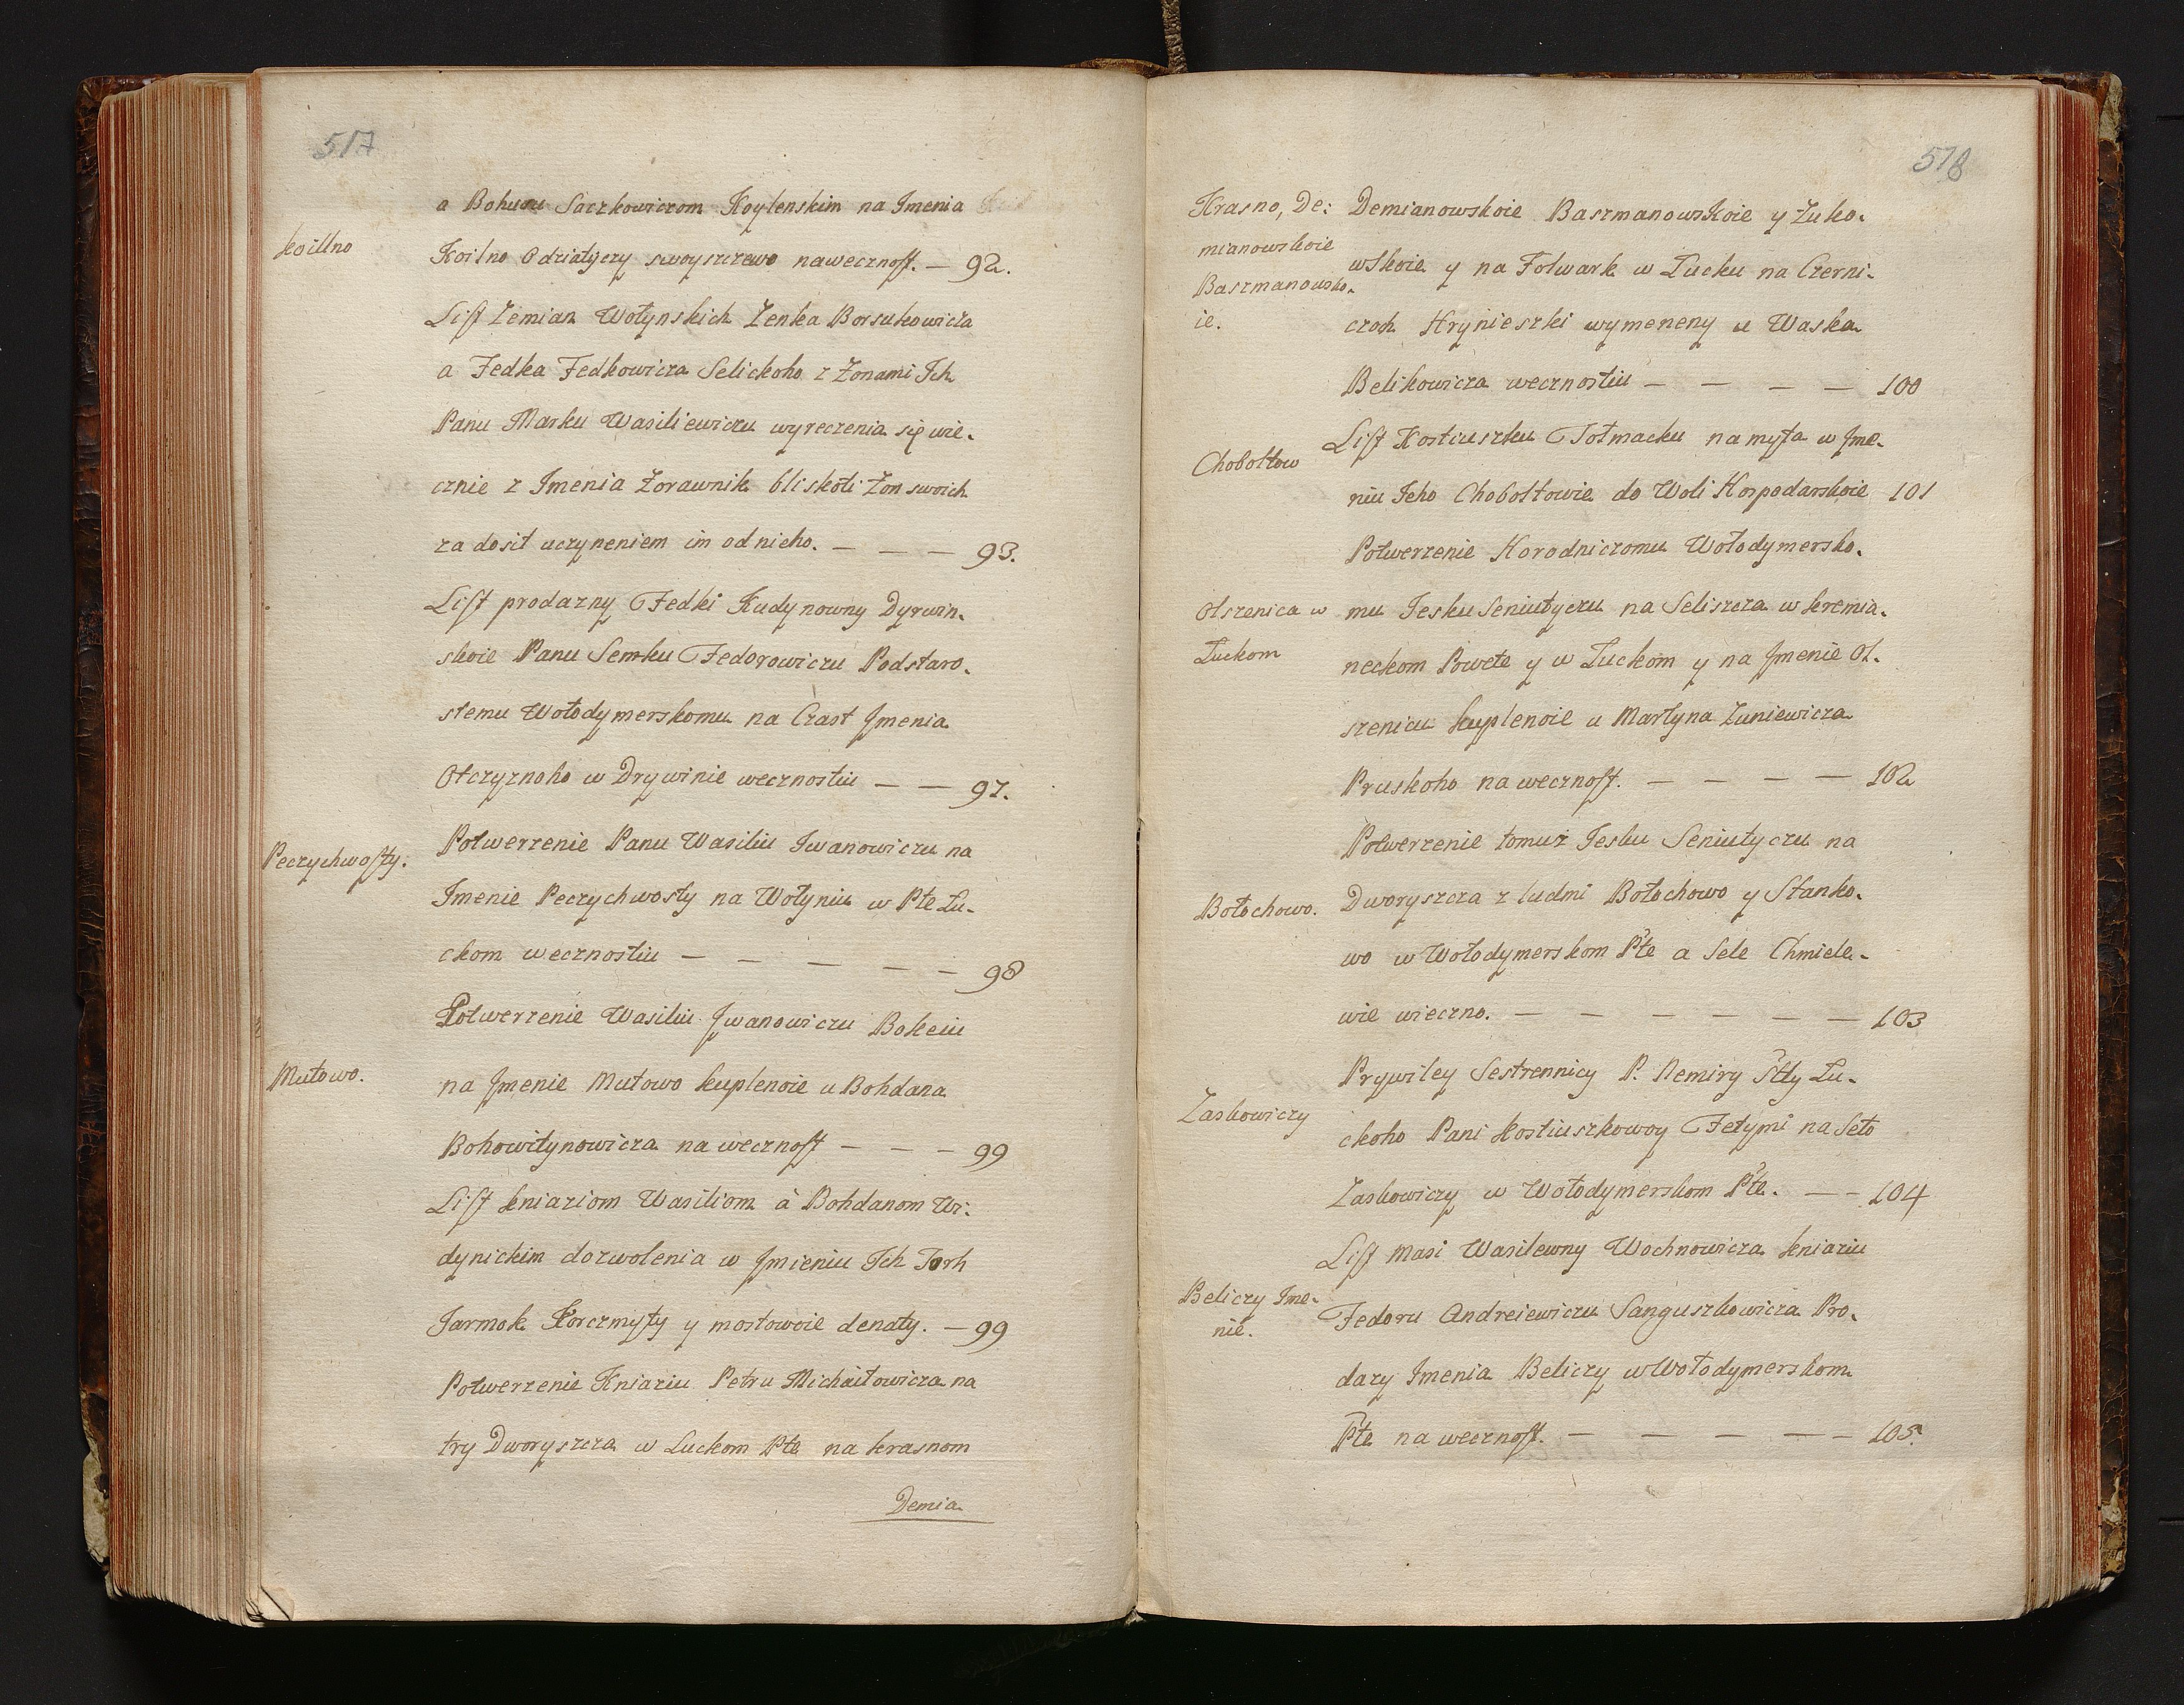 517
a Bohusu Saczkowiczom Koylenskim na Imenia
koillno
Koilno Odziatyczy swoyszczewo nawecznost. — 92.
List Zemian Wołynskich Zenka Borsukowicza
a Fedka Fedkowicza Selickoho z Zonami Ich
Panu Marku Wasiliewiczu wyreczenia się wie-
cznie z Imenia Zorawnik bliskoti Zon swoich
za dosit uczyneniem im od nieho. — — — 93.
List prodazny Fedki Kudynowny Dyrwin-
skoie Panu Semku Fedorowiczu Podstaro-
stemu Wołodymerskomu na Czast Imenia
Otczyznoho w Drywinie wecznostiu — — 97.
Peczychwosty.
Potwerzenie Panu Wasiliu Iwanowiczu na
Imenie Peczychwosty na Wołyniu w Pte Łu-
ckom wecznostiu — — — — — 98
Potwerzenie Wasiliu Iwanowiczu Bokeiu
Mutowo.
na Imenie Mutowo kuplenoie u Bohdana
Bohowitynowicza na wecznost — — — 99
List kniaziom Wasiliom à Bohdanom Wi-
dynickim dozwolenia w Imieniu Ich Torh
Jarmok Korczmyty y mostowoie denaty. — 99
Potwerzenie Kniaziu Petru Michaiłowicza na
try Dworyszcza w Luckom Pte na krasnom
Demia
518
Krasno, De:
mianowskoie
Baszmanowsko-
ie.
Demianowskoie Baszmanowskoie y Zuko-
wskoie y na Folwark w Łucku na Czerni-
czoch Hrynieszki wymeneny u Waska
Belikowicza wecznostiu — — — — 100
Chobołtow
List Kostiuszku Tołmacku na myta w Ime-
niu Ieho Chobołtowie do Woli Hospodarskoie 101
Potwerzenie Horodniczomu Wołodymersko-
Olszenica w
Łuckom
mu Iesku Seniutyczu na Seliszcza w kremia-
neckom Powete y w Łuckom y na Imenie Ol-
szenicu kuplenoie u Martyna Zuniewicza
Pruskoho na wecznost. — — — — 102
Potwerzenie tomuz Iesku Seniutyczu na
Bołochowo.
Dworyszcza z ludmi Bołochowo y Stanko-
wo w Wołodymerskom Pte a Sele Chmiele-
wie wieczno. — — — — — — 103
Prywiley Sestrennicy P. Nemiry Stty Łu-
Zaskowiczy
ckoho Pani Kostiuszkowoy Fetymi na Seło
Zaskowiczy w Wołodymerskom Pte. — — 104
List Masi Wasilewny Wochnowicza kniaziu
Beliczy Ime-
nie.
Fedoru Andreiewiczu Sanguszkowicza Pro-
dazy Imenia Beliczy w Wołodymerskom
Pte na wecznost. — — — — — 105.